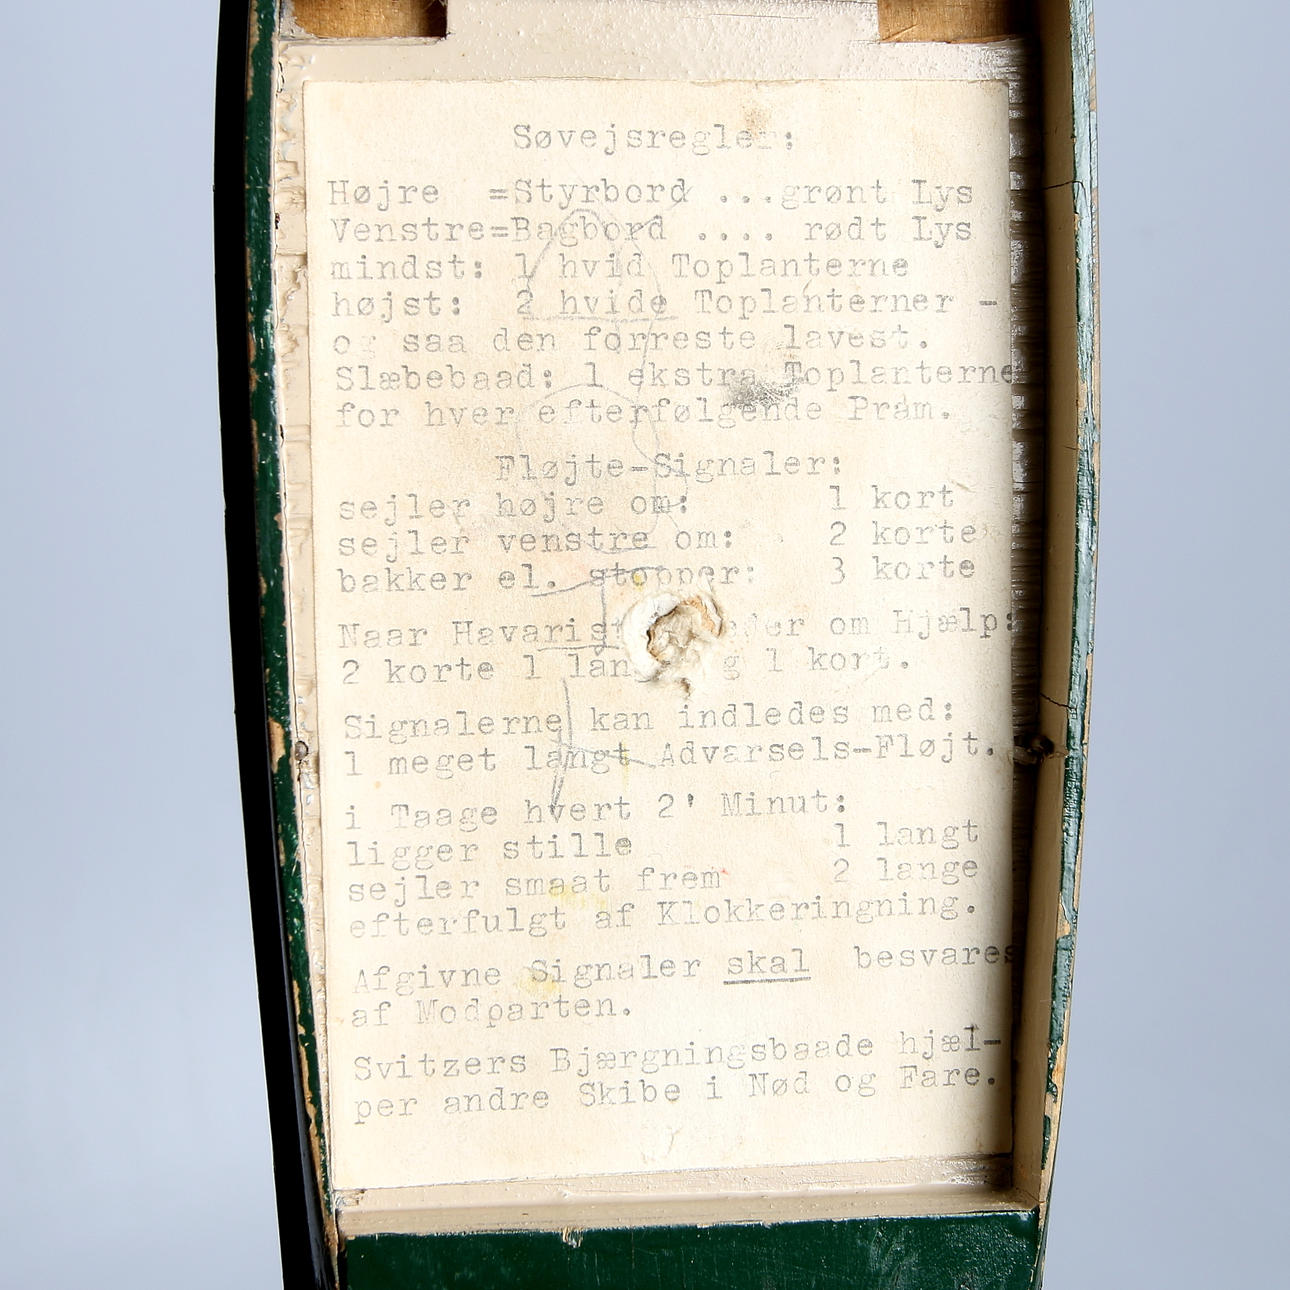 Søvejsregler:
Højre =Styrbord ...grønt Lys
Venstre=Bagbord .... rødt Lys
mindst: 1 hvid Toplanterne
højst: 2 hvide Toplanterner -
og saa den forreste lavest.
Slæbebaad: 1 ekstra Toplanterne
for hver efterfølgende Pram.
Fløjte-Signaler:
sejler højre om: 1 kort
sejler venstre om: 2 korte
bakker el. stopper: 3 korte
Naar om Hjælp:
2 korte 1 1 kort.
Signalerne kan indledes med:
1 meget langt Advarsels-Fløjt.
i Taage hvert 2' Minut:
ligger stille 1 langt
sejler smaat frem 2 lange
efterfulgt af Klokkeringning.
Afgivne Signaler skal besvares
af Modparten.
Svitzers Bjærgningsbaade hjæl-
per andre Skibe i Nød og Fare.